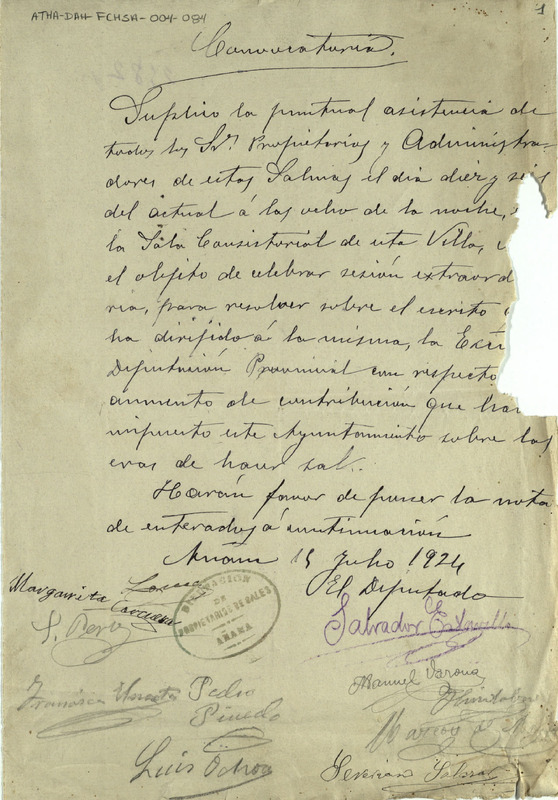 ATHA-DAH-FCHSA-004-084
1
Convocatoria.
Suplico la puntual asistencia de
todos los Srs Propietarios y Administra-
dores de estas Salinas el dia diez y seis
del actual á las ocho de la noche,
la Sala Consistorial de esta Villa,
el objeto de celebrar sesión extraord
ria, para resolver sobre el escrito
ha dirijido á la misma, la Exc
Diputación Provincial con respecto
aumento de contribución que ha
impuesto este Ayuntamiento sobre las
eras de hacer sal.
Harán favor de poner la nota
de enterados á continuación
Añana 15 Julio 1924
El Diputado
Margarita
DE
PROPIETARIOS DE SALES
AÑANA
Salvador
Manuel Varona
Francisca
Pedro
Pinedo
Marcos
Luis Ochoa
Severiano